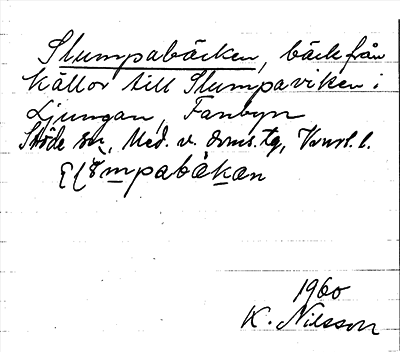 Slumpabäcken, bäck från
källor till Slumpaviken i
Ljungan, Fanbyn
Stöde sn, Med. v. doms. tg,
mpabäkan
1960
K. Nilsson